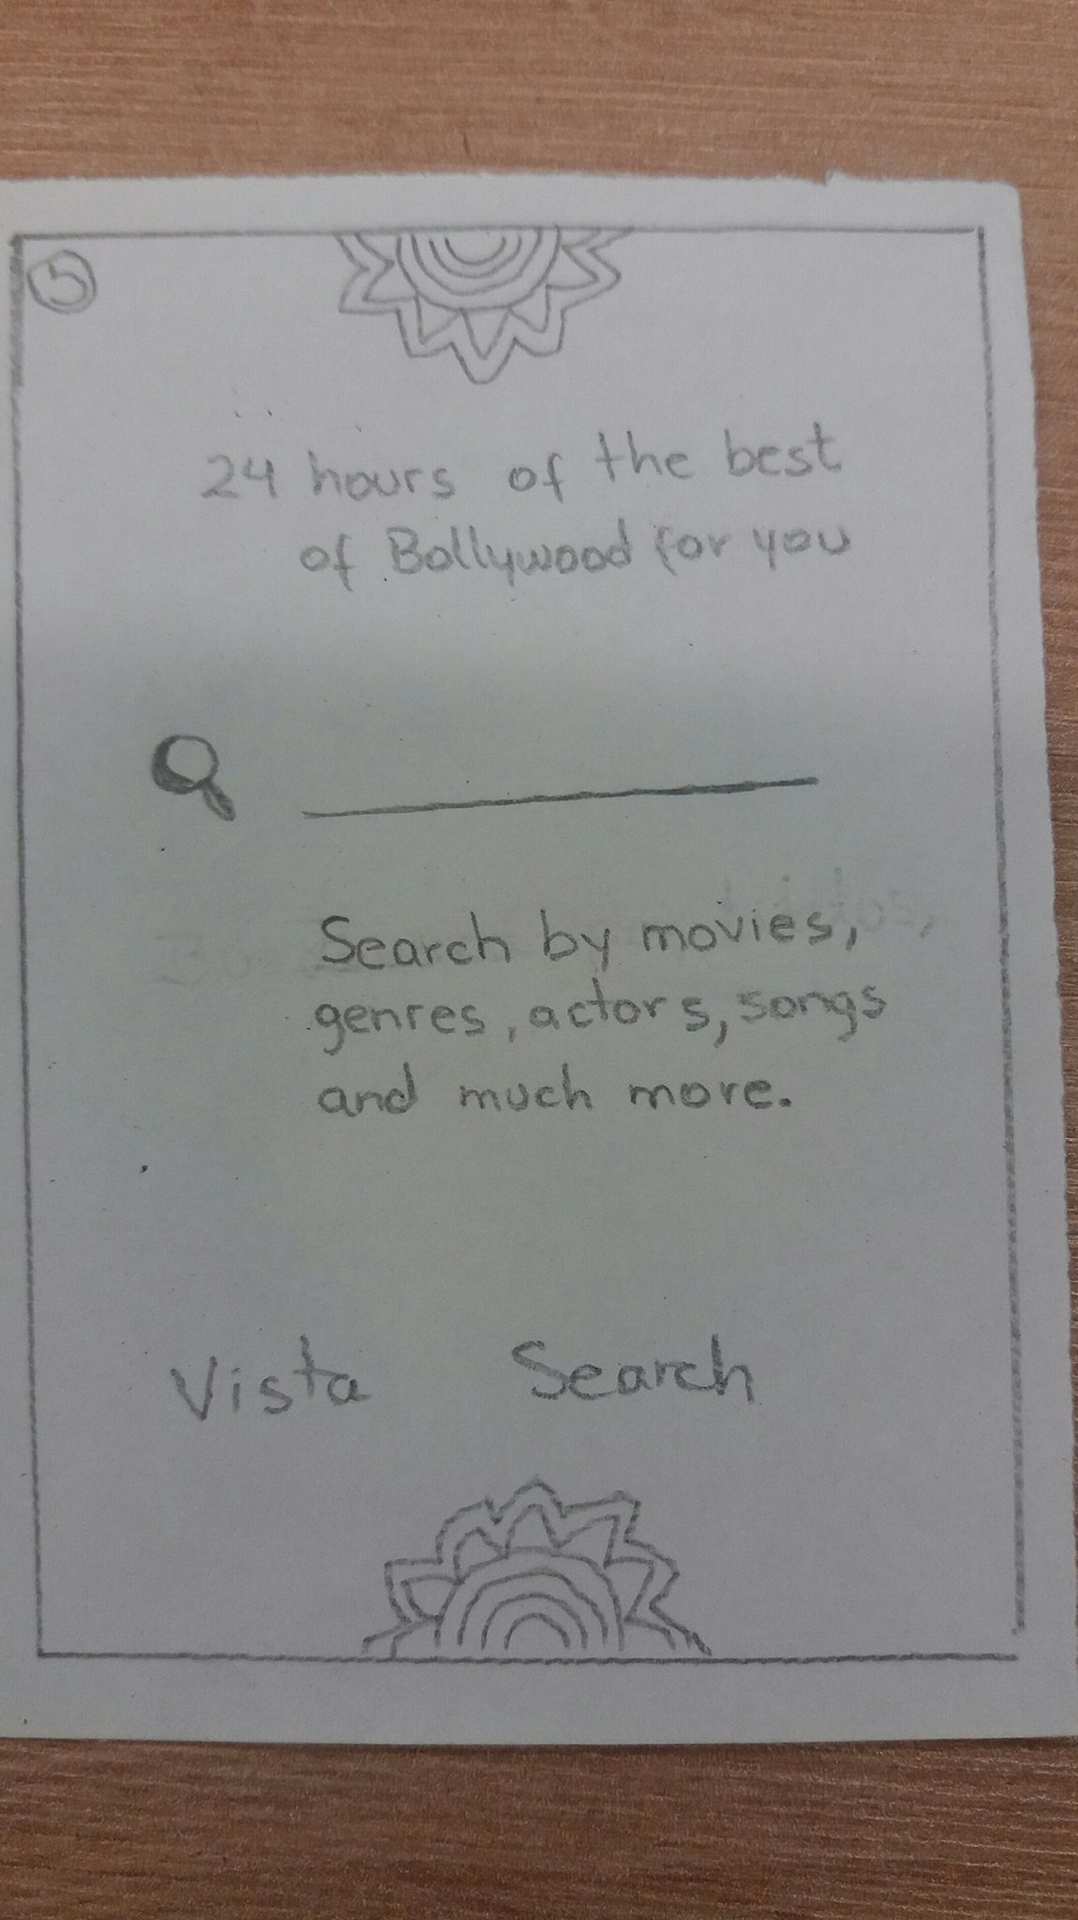 5
24 hours of the best
of Bollywood for you
Search by movies,
genres, actors, songs
and much more.
Vista Search